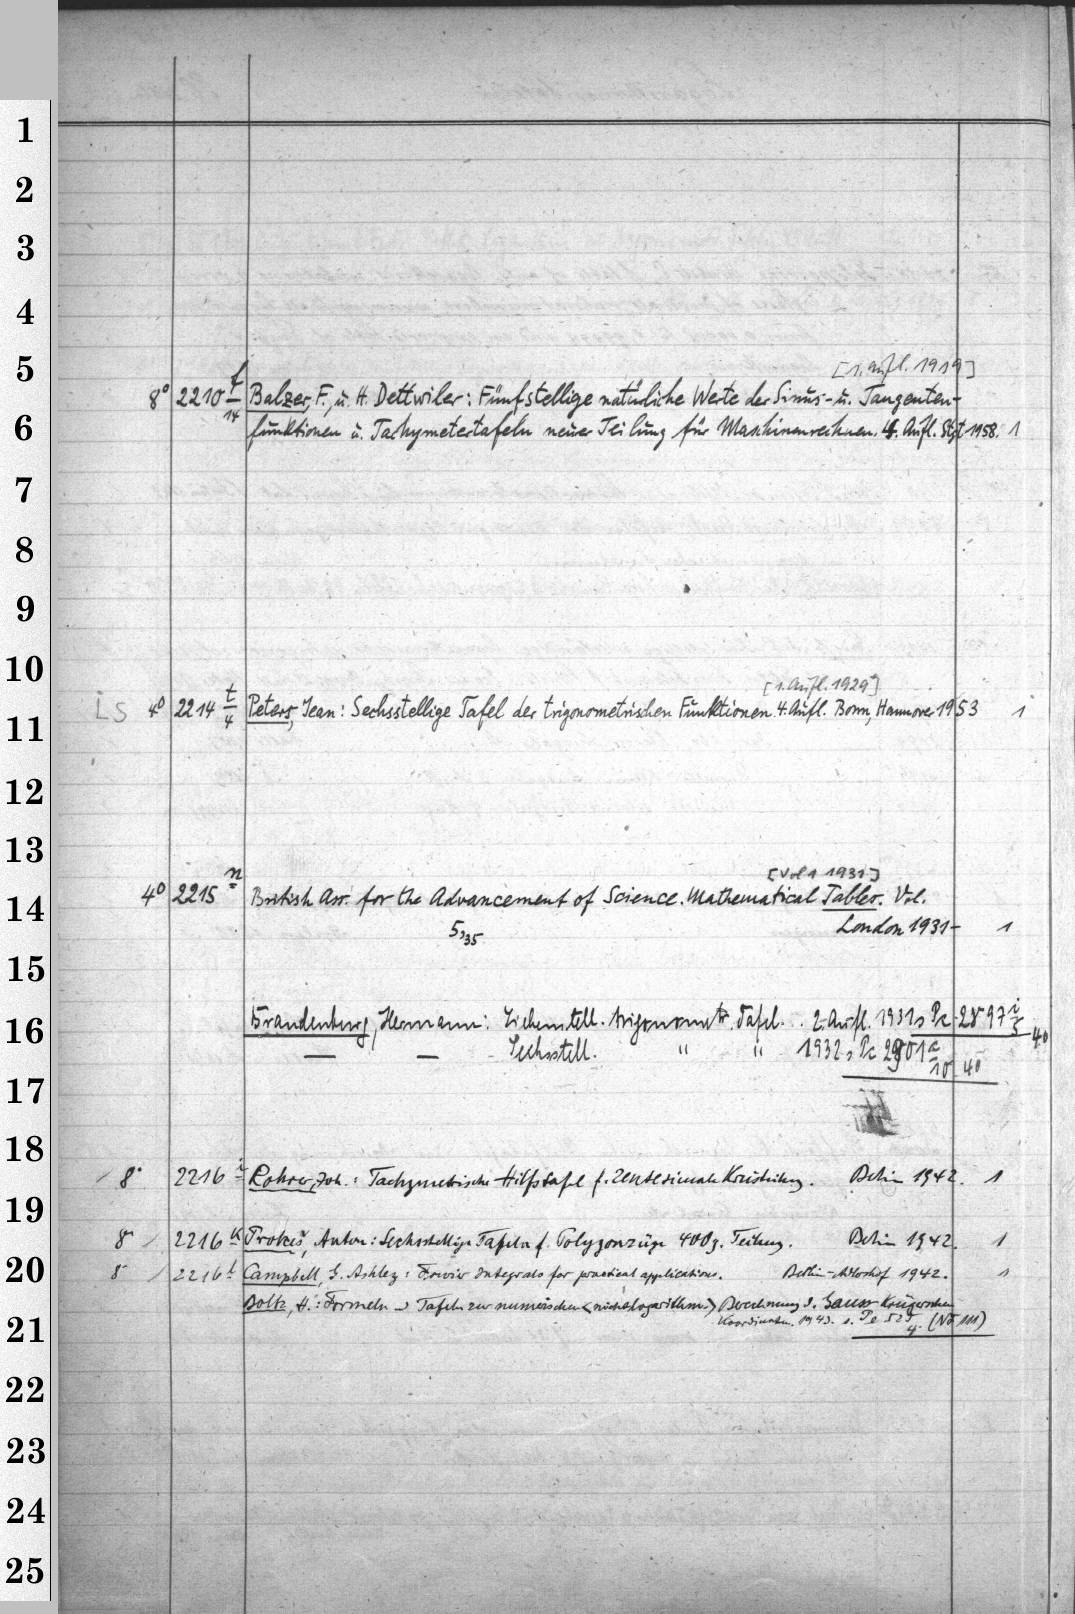 1
2
3
4
5
[1. Aufl. 1919]
8° 2210 f/14 Balzer, F., u. H. Dettwiler: Fünfstellige natürliche Werte der Sinus- u. Tangenten-
6
funktionen u. Tachymetertafeln neuer Teilung für Maschinenrechnen. 4. Aufl. Stgt 1958. 1
7
8
9
10
[1. Aufl. 1929]
LS 4° 2214 t/4 Peters, Jean: Sechsstellige Tafel der trigonometrischen Funktionen. 4. Aufl. Bonn, Hannover 1953 1
11
12
13
[Vol 1 1931]
4° 2215 n British Ass. for the Advancement of Science. Mathematical Tables. Vol.
14
5,35 London 1931- 1
15
16
Brandenburg, Hermann: Siebenstell. trigonometr. Tafel. 2. Aufl. 1931 s Pc 2897 i/5 4°
— — Sechsstell. " " 1932 s Pc 2901 c/10 4°
17
18
8° 2216 i Rohrer, Joh.: Tachymetrische Hilfstafel f. zentesimale Kreisteilung. Berlin 1942. 1
19
8° 2216 k Prokeš, Anton: Sechsstellige Tafeln f. Polygonzüge 400g. Teilung. Berlin 1942. 1
20
8° 2216 l Campbell, G. Ashley: Fourier Integrals for practical applications. Berlin-Adlershof 1942. 1
Boltz, H.: Formeln u. Tafeln zur numerischen <nichtlogarithm.> Berechnung d. Gauss-Krügerschen
21
Koordinaten. 1943. s. Pe 525/4 (No 111)
22
23
24
25